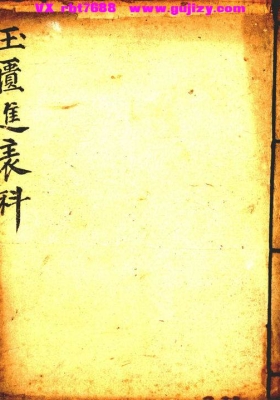 VX rht7688 www.gujizy.com
玉匱進表科